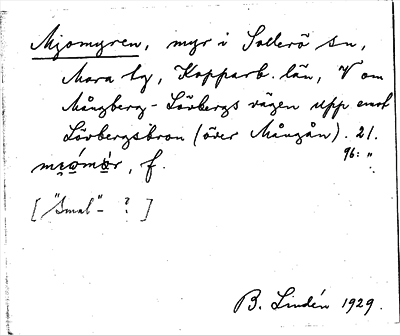 Mjomyren, myr i Sollerö sn,
Mora tg, Kopparb. län, V om
Mångberg - Lövbergs vägen upp emot
Lövbergsbron (över Mångån). 21.
96: ".
f.
["Smal"- ? ]
B. Lindén 1929.